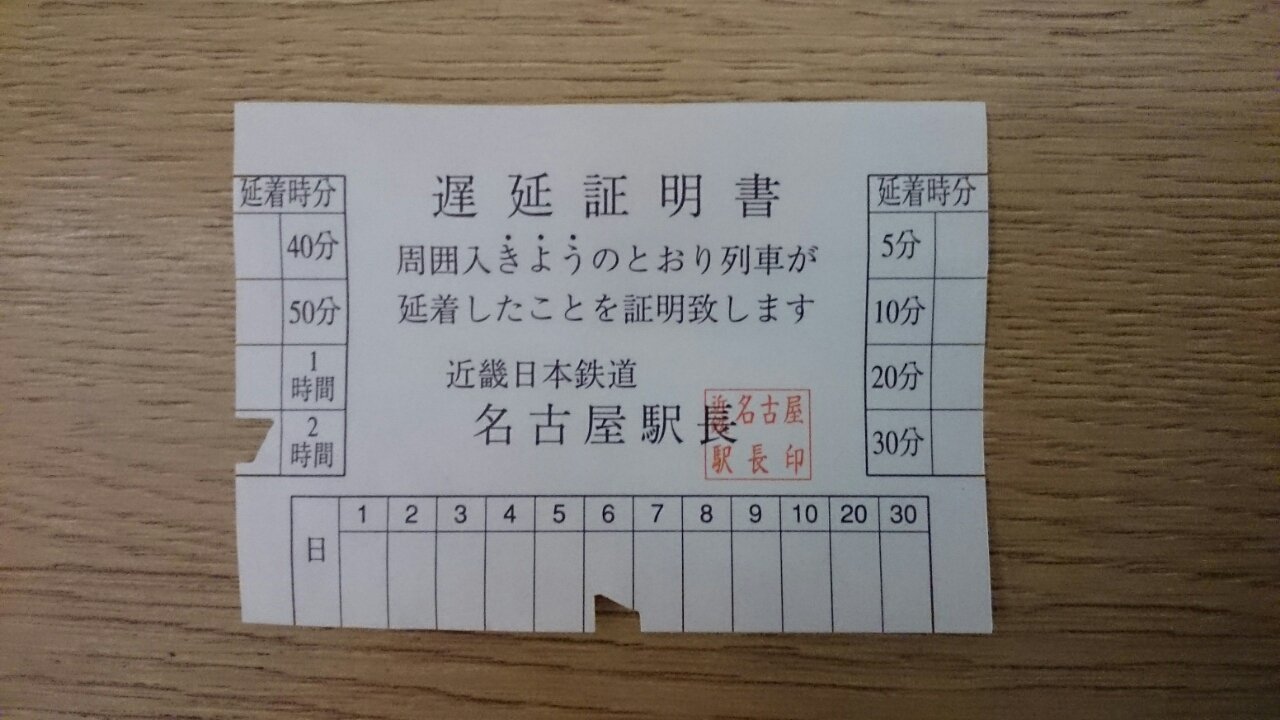 遅延証明書
周囲入きようのとおり列車が
延着したことを証明致します
近畿日本鉄道
名古屋駅長
名古屋
駅長印
延着時分
40分
50分
1
時間
2
時間
延着時分
5分
10分
20分
30分
日 1 2 3 4 5 6 7 8 9 10 20 30